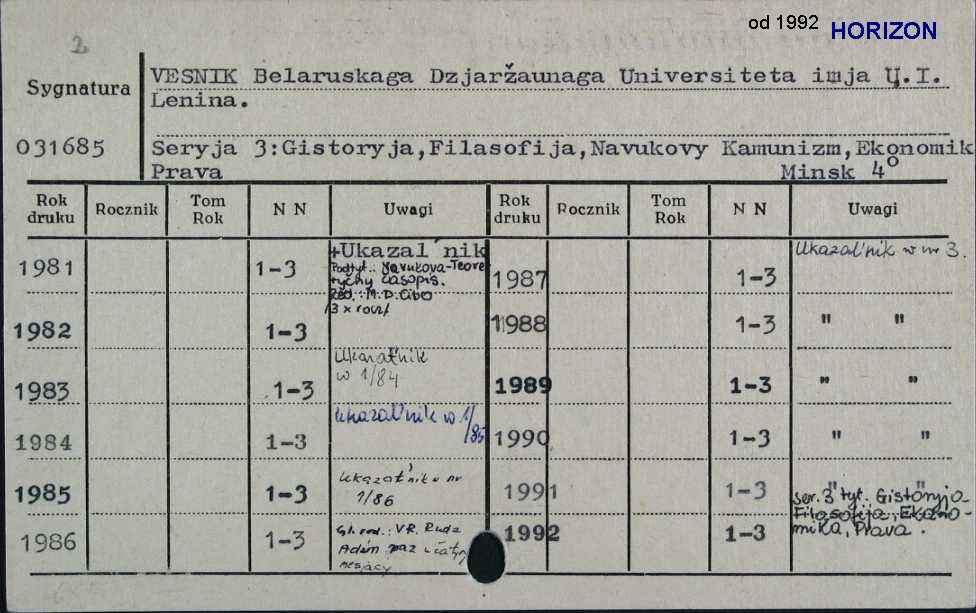 od 1992 HORIZON
2
Sygnatura
VESNIK Belaruskaga Dzjaržaunaga Universiteta imja Ų.I.
Lenina.
031685
Seryja 3:Gistoryja,Filasofija,Navukovy Kamunizm,Ekonomik
Prava Minsk 4°
Rok druku Rocznik Tom Rok N N Uwagi Rok druku Rocznik Tom Rok N N Uwagi
1981 1-3 +Ukazal'nik
Podtyt.: Navukova-Teore
tyčny časopis.
Red.: M.D. Cibo
/3 x rocz/
1982 1-3
1983 1-3 Ukazal'nik
w 1/84
1984 1-3 Ukazal'nik w 1/85
1985 1-3 Ukazal'nik w nr
1/86
1986 1-3 Gł. red.: V.R. Ruda
Adzin raz u čatyry
mesjacy
1987 1-3 Ukazal'nik w nr 3.
1988 1-3 " "
1989 1-3 " "
1990 1-3 " "
1991 1-3 " "
1992 1-3 ser. 3 tyt. Gistoryja
Filasofija, Ekano-
mika, Prava.